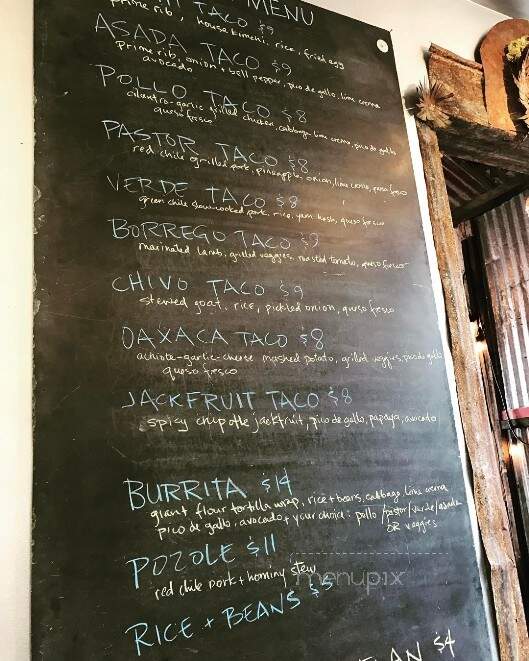 MENU
TACO $9
prime rib, house kimchi, rice, fried egg
ASADA TACO $9
prime rib, onion + bell pepper, pico de gallo, lime crema
avocado
POLLO TACO $8
cilantro-garlic grilled chicken, cabbage, lime crema, pico de gallo
queso fresco
PASTOR TACO $8
red chile grilled pork, pineapple, onion, lime crema, queso fresco
VERDE TACO $8
green chile slow-cooked pork, rice, yam hash, queso fresco
BORREGO TACO $9
marinated lamb, grilled veggies, roasted tomato, queso fresco
CHIVO TACO $9
stewed goat, rice, pickled onion, queso fresco
OAXACA TACO $8
achiote-garlic-cheese mashed potato, grilled veggies, pico de gallo
queso fresco
JACKFRUIT TACO $8
spicy chipotle jackfruit, pico de gallo, papaya, avocado
BURRITA $14
giant flour tortilla wrap, rice + beans, cabbage, lime crema
pico de gallo, avocado + your choice: pollo /pastor/verde/asada
OR veggies
POZOLE $11
red chile pork + hominy stew
menupix
RICE + BEANS $5
$4